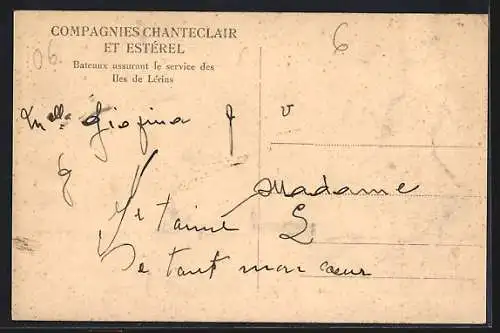 COMPAGNIES CHANTECLAIR
ET ESTÉREL
Bateaux assurant le service des
Iles de Lérins
06.
6
Melle Giofina f v
Madame
Je t'aime
L
de tout mon cœur